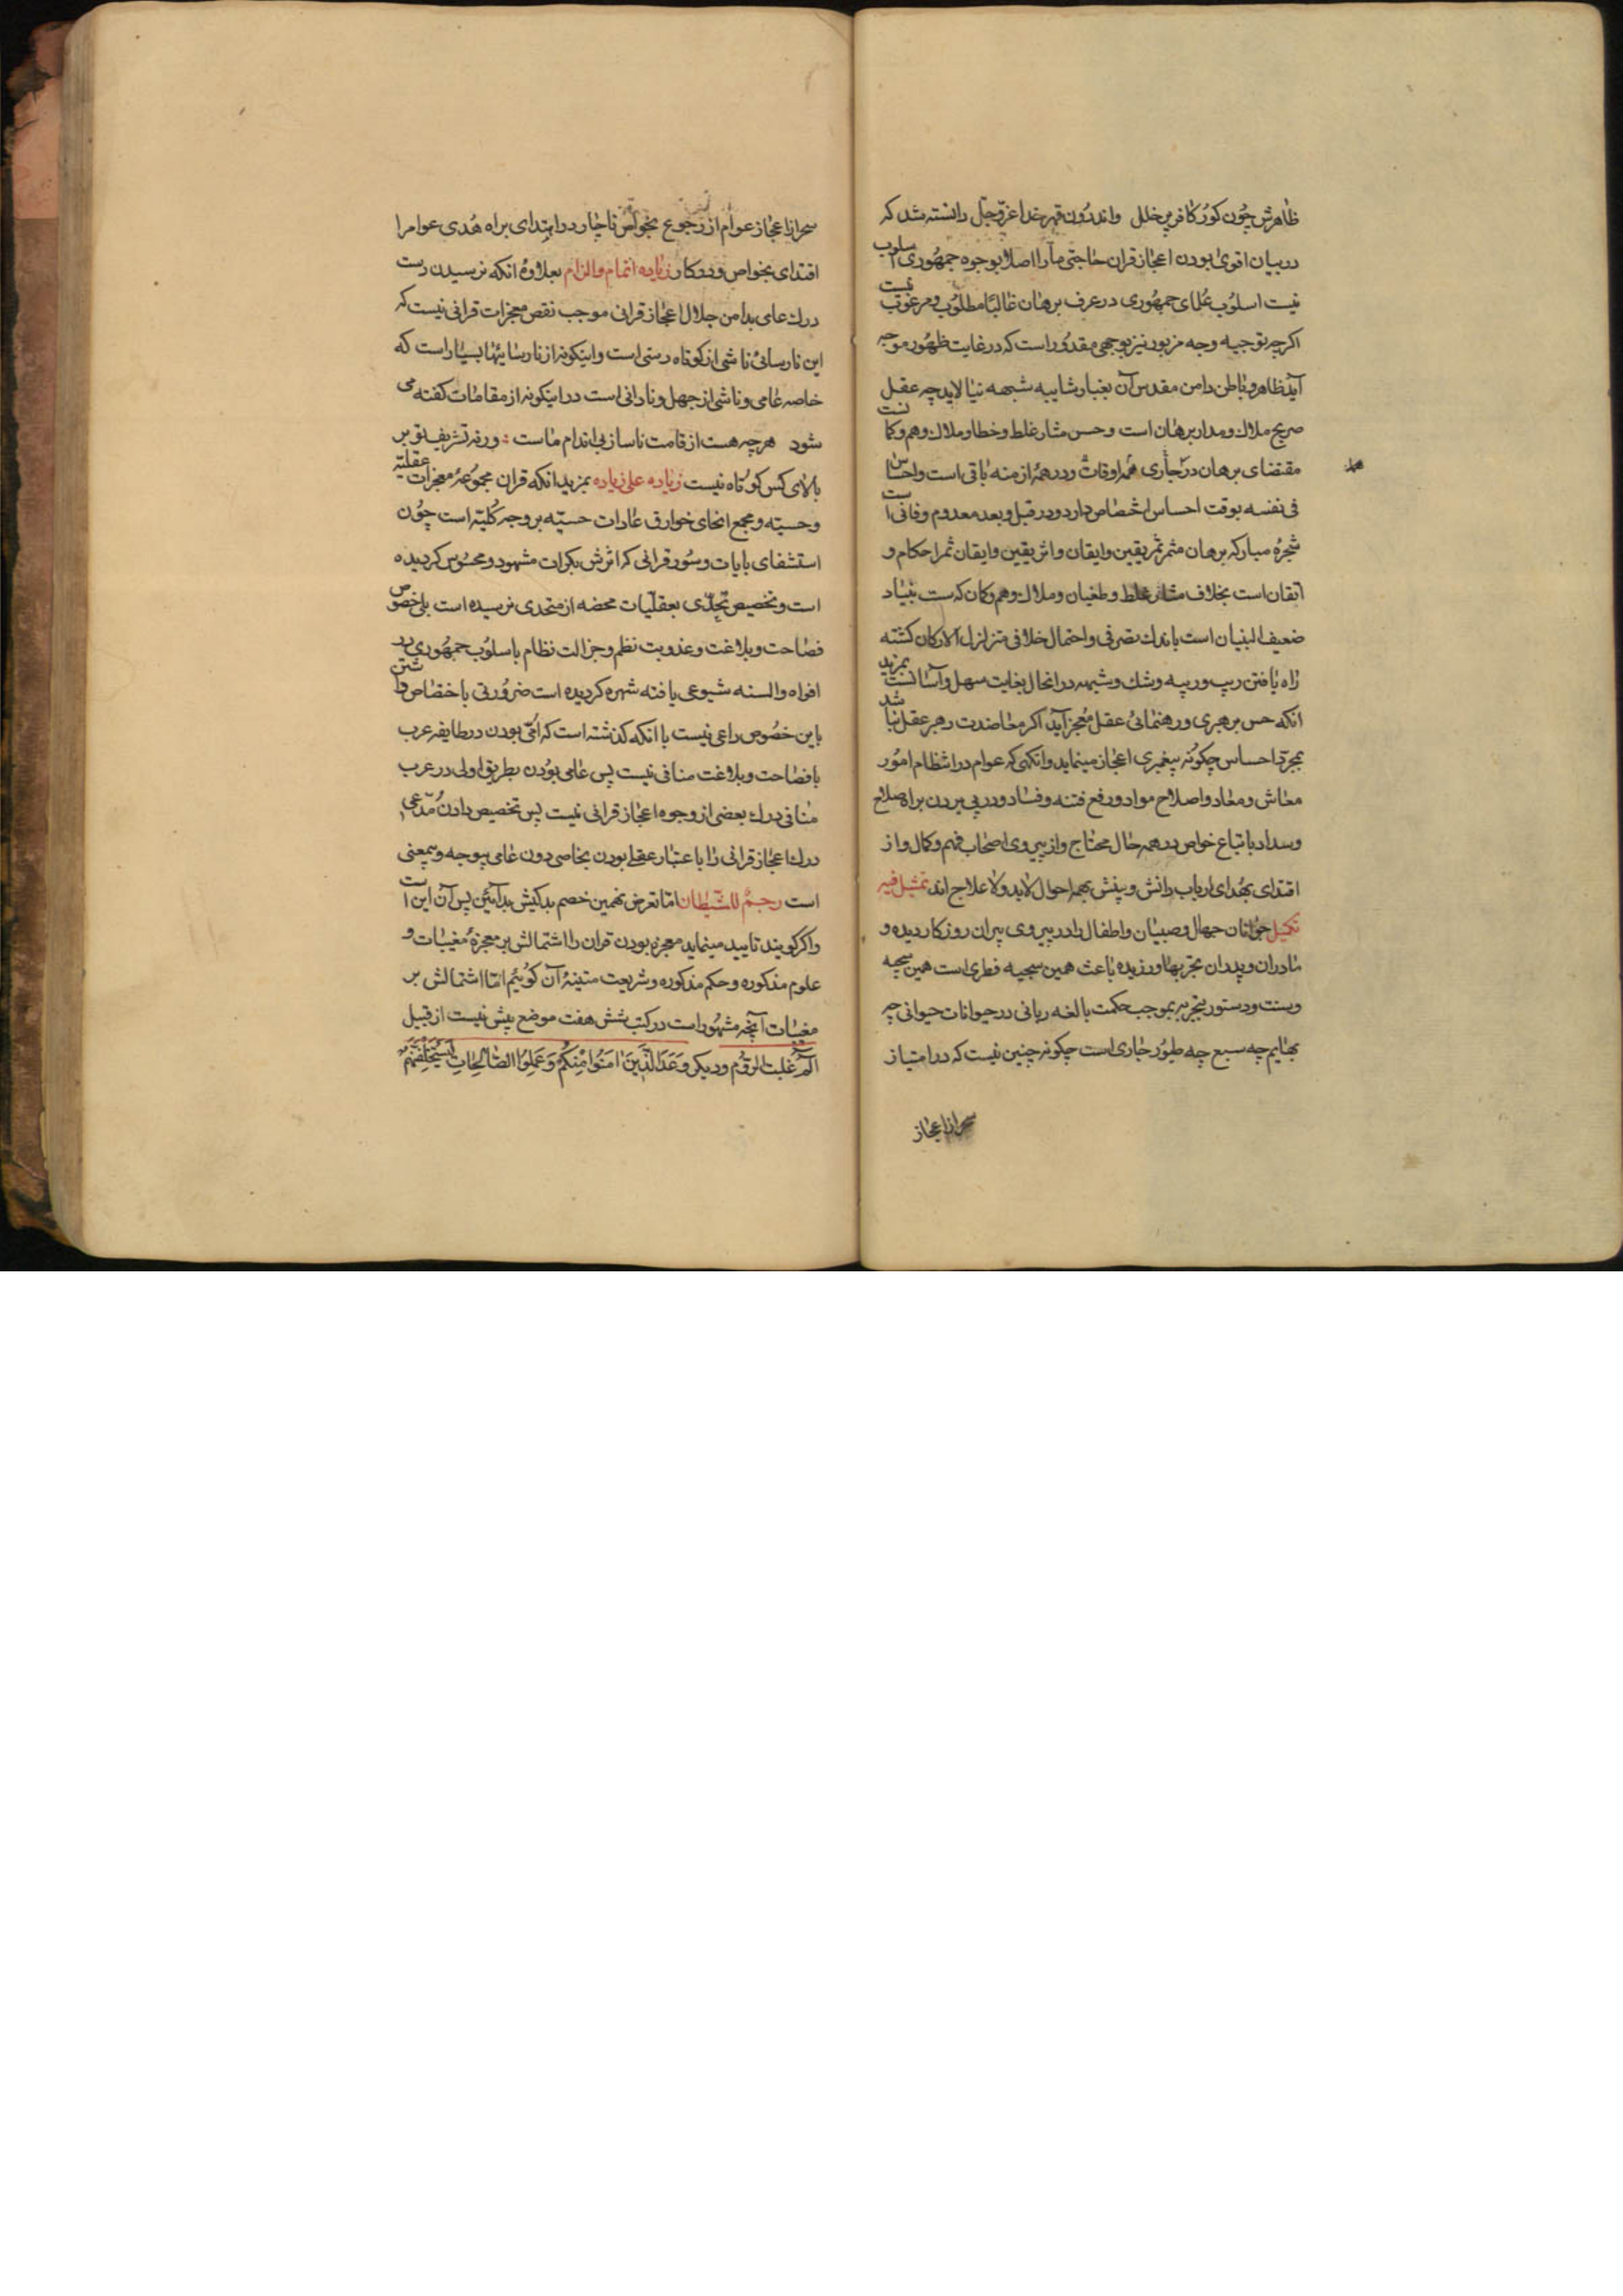 ظاهرش چون کور کافر پر خلل واندرون قهر خدا عزّوجلّ دانسته شد که
در بیان اقوی بودن اعجاز قران حاجتی مارا اصلا بوجوه جمهوری اسلوب
نیست اسلوب علمای جمهوری در عرف برهان غالبًا مطلوب ومرغوب نیست
اکرچه توجیه وجه مزبور نیز بوجهی مقدور است که در غایت ظهور موجه
آید ظاهر وباطن دامن مقدس آن بغبار شایبه شبهه نیالاید چه عقل
صریح ملاك ومدار برهان است وحس مثار غلط وخطا وملاك وهم وکمانست
مقتضای برهان در مجاری همه اوقات ودر همهٔ ازمنه باقی است واحساس
فی نفسه بوقت احساس اختصاص دارد ودر قبل وبعد معدوم وفانی است
شجرهٔ مبارکه برهان مثمر ثمر یقین وایقان واثر یقین وایقان ثمر احکام و
اتقان است بخلاف مثار غلط وطغیان وملاك وهم وکمان که سست بنیاد
ضعیف البنیان است باندك تصرفی واحتمال خلافی متزلزل الارکان کشته
راه یافتن ریب وریبه وشك وشبهه در انحال بغایت سهل وآسانست بمزید
انکه حس برهبری ورهنمائی عقل معجز آید اکر معاضدت رهبر عقل نباشد
بمجرّد احساس چکونه پیغمبری اعجاز مینماید وانکهی که عوام در انتظام امور
معاش ومعاد واصلاح مواد ورفع فتنه وفساد ودر پی بردن براه صلاح
وسداد باتباع خواص در همه حال محتاج واز پیروی اصحاب فهم وکمال واز
اقتدای بهدای ارباب دانش وبینش بهمه احوال لابد ولا علاج اند تمثیل فیه
تکمیل جوانان جهال وصبیان واطفال را در پیروی پیران روزکار دیده و
مادران وپدران تجربها ورزیده باعث همین سجیه فطری است همین سجیه
وسنت ودستور بتجربه بموجب حکمت بالغه ربانی در حیوانات حیوانی چه
بهایم چه سبع چه طیور جاری است چکونه چنین نیست که در امتیاز
سحر از اعجاز
سحر از اعجاز عوام از رجوع بخواص ناچار ودر ابتدای براه هدی عوام را
اقتدای بخواص ودرکار زیاده اتمام والزام بعلاوهٔ انکه نرسیدن دست
درك عامی بدامن جلال اعجاز قرانی موجب نقص معجزات قرانی نیست که
این نارسائی ناشی از کوتاه دستی است واینکونه از نارسائیها بسیار است که
خاصه عامی وناشی از جهل ونادانی است در اینکونه از مقامات کفته می
شود هرچه هست از قامت ناساز بی اندام ماست ؛ ورنه تشریف تو بر
بالای کس کوتاه نیست زیاده علی زیاده بمزید انکه قران مجموعهٔ معجزات عقلیّه
وحسیّه ومجمع انحای خوارق عادات حسیّه بر وجه کلیّه است چون
استشفای بایات وسور قرانی که اثرش بکرات مشهود ومحسوس کردیده
است وتخصیص تحدّی بعقلّیات محضه از متحدی نرسیده است بلی خصوص
فصاحت وبلاغت وعذوبت نظم وجزالت نظام باسلوب جمهوری در
افواه والسنه شیوعی یافته شهره کردیده است ضرورتی باختصاص داشتن
باین خصوص داعی نیست با انکه کذشته است که امّی بودن در طایفه عرب
با فصاحت وبلاغت منافی نیست پس عامی بودن بطریق اولی در عرب
منافی درك بعضی از وجوه اعجاز قرانی نیست پس تخصیص دادن مدّعی
درك اعجاز قرانی را با عتبار عقلی بودن بخاصی دون عامی بیوجه وبیمعنی
است رجم للشیطان امّا تعرض نهمین خصم بدکیش بدآئین پس آن این است
واکر کویند تایید مینماید معجزه بودن قران را اشتمالش بر معجزهٔ مغیبات و
علوم مذکوره وحکم مذکوره وشریعت متینهٔ آن کوئیم امّا اشتمالش بر
مغیبات آنچه مشهور است در کتب شش هفت موضع بیش نیست از قبیل
الم غلبت الروم ودیکر وَعَدَ الَّذینَ امَنُوا مِنکُم وَعَمِلُوا الصَّالِحَاتِ لَیَستَخلِفَنَّهُم